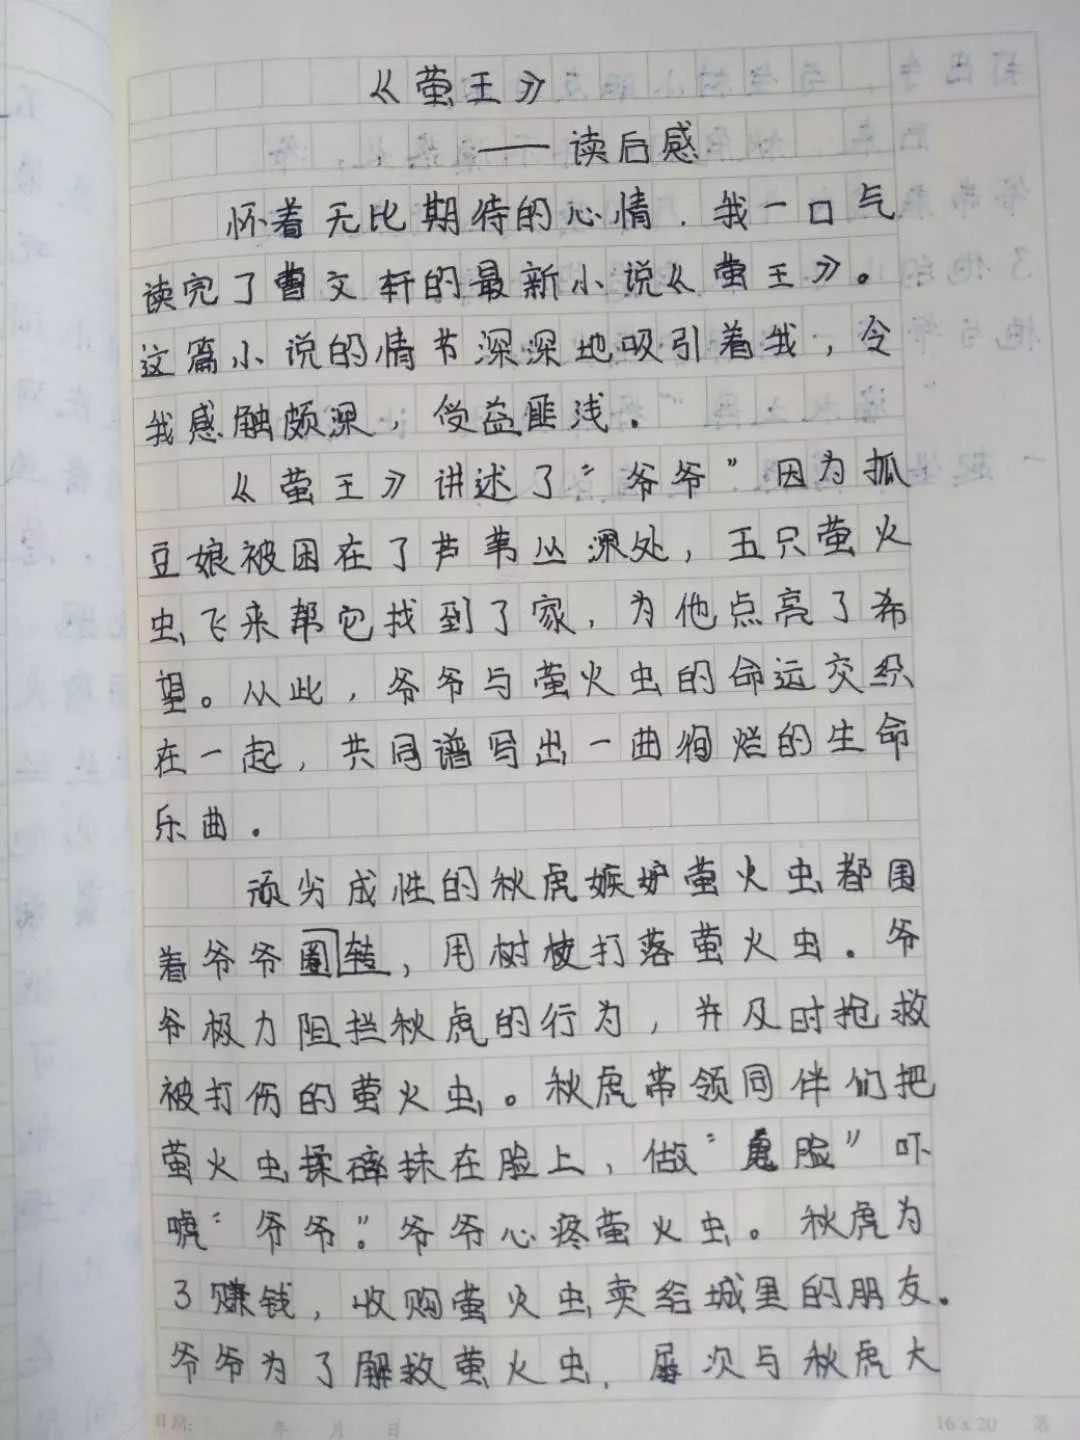 《萤王》
——读后感
怀着无比期待的心情.我一口气
读完了曹文轩的最新小说《萤王》。
这篇小说的情节深深地吸引着我，令
我感触颇深，受益匪浅.
《萤王》讲述了“爷爷”因为孤
豆娘被困在了芦苇丛深处，五只萤火
虫飞来帮它找到了家，为他点亮了希
望。从此，爷爷与萤火虫的命运交织
在一起，共同谱写出一曲绚烂的生命
乐曲.
顽劣成性的秋虎嫉妒萤火虫都围
着爷爷圈转，用树枝打落萤火虫.爷
爷极力阻拦秋虎的行为，并及时抢救
被打伤的萤火虫。秋虎带领同伴们把
萤火虫揉碎抹在脸上，做“鬼脸”吓
唬“爷爷”。爷爷心疼萤火虫。秋虎为
了赚钱，收购萤火虫卖给城里的朋友.
爷爷为了解救萤火虫.屡次与秋虎大
日期: 年 月 日
16x20